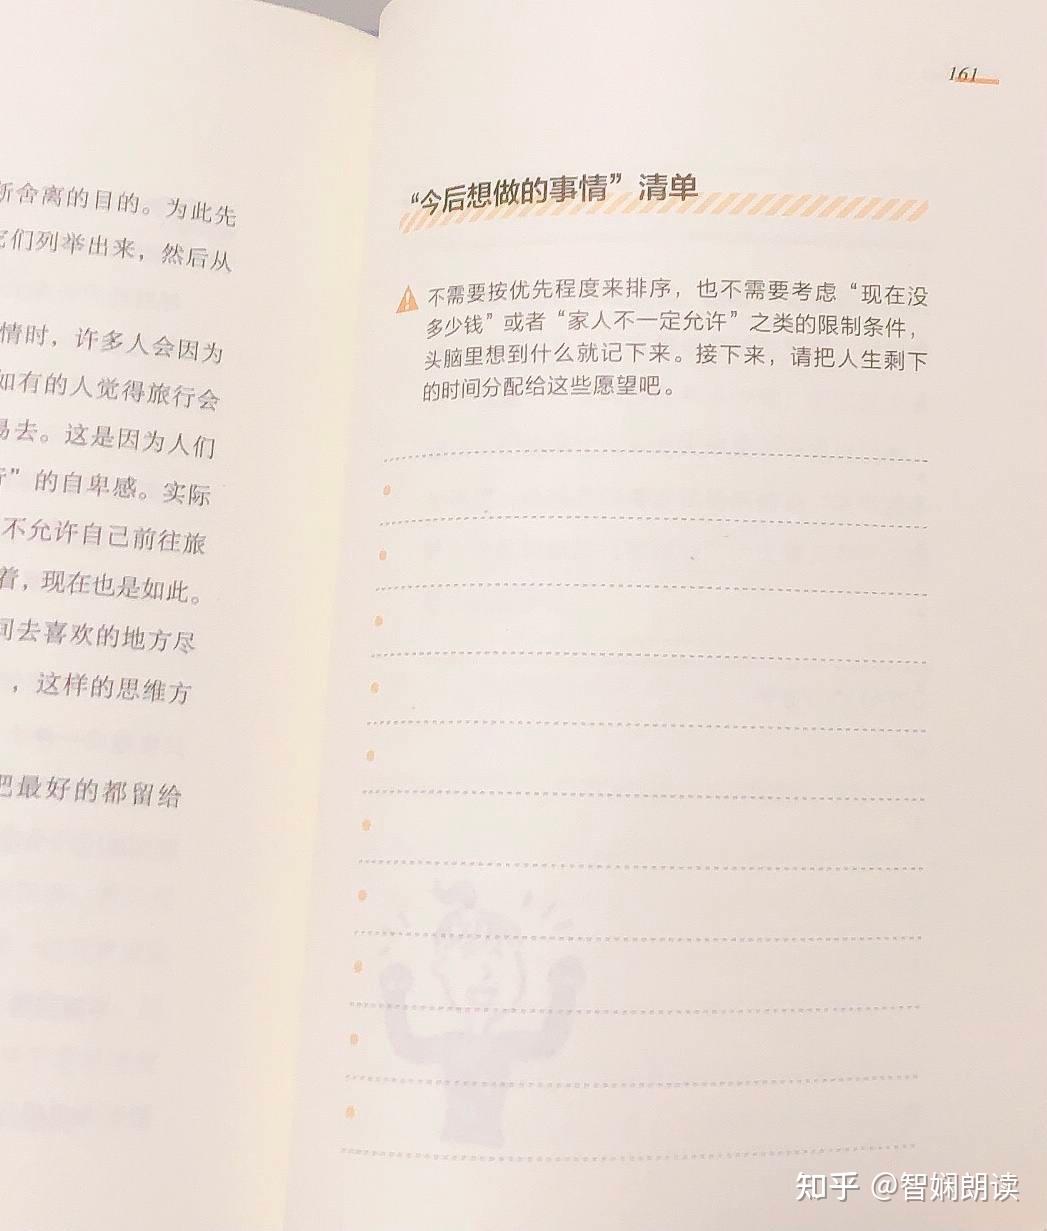 断舍离的目的。为此先
它们列举出来，然后从
情时，许多人会因为
如有的人觉得旅行会
易去。这是因为人们
行”的自卑感。实际
不允许自己前往旅
着，现在也是如此。
间去喜欢的地方尽
，这样的思维方
把最好的都留给
161
“今后想做的事情”清单
不需要按优先程度来排序，也不需要考虑“现在没
多少钱”或者“家人不一定允许”之类的限制条件，
头脑里想到什么就记下来。接下来，请把人生剩下
的时间分配给这些愿望吧。
知乎 @智娴朗读